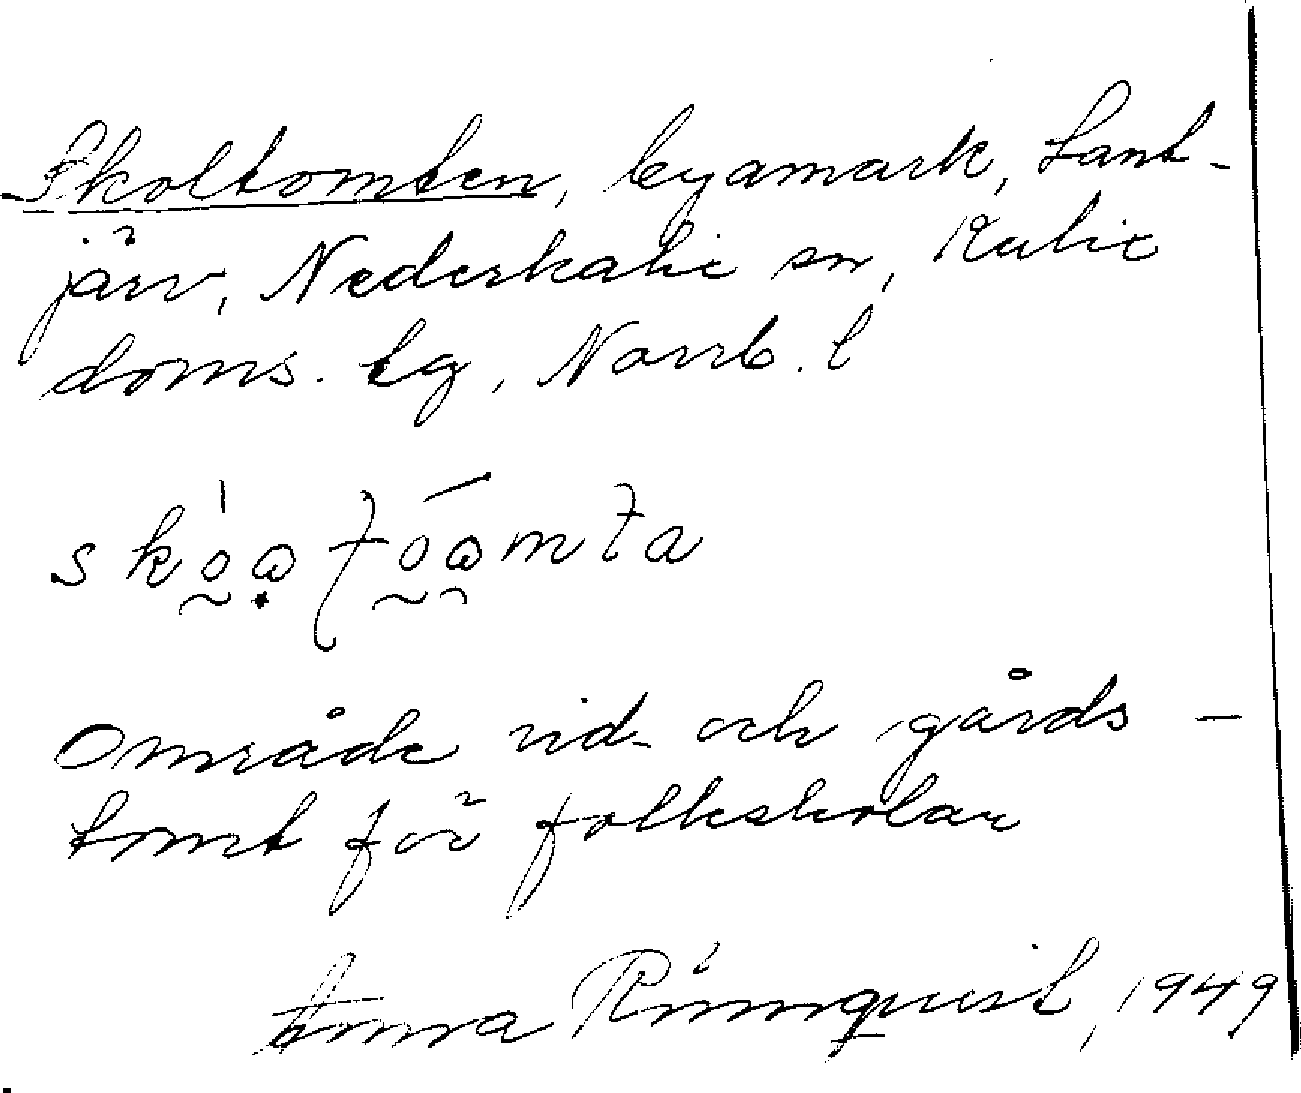 Skoltomten, byamark, Lant-
järv, Nederkalix sn, Kalix
doms. tg, Norrb. l
Område vid och gårds-
tomt för folkskolan
Anna Rönnquist, 1949